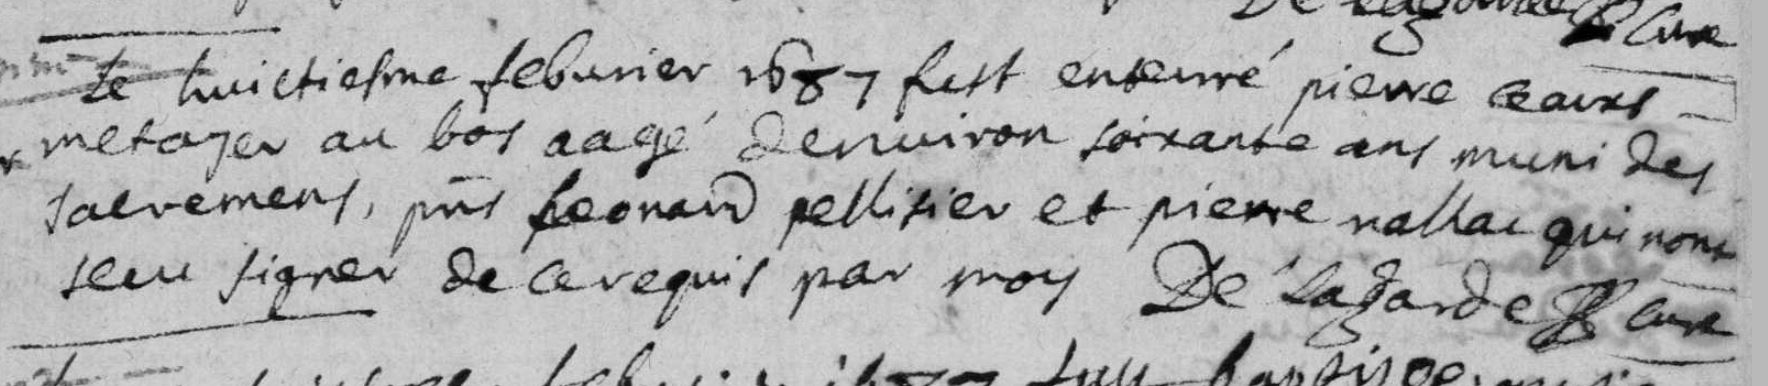 De Lagarde Curé
Le huictiesme feburier 1687 fust enterré pierre
metayer au bos aagé denuiron soixante ans muni des
sacremens, pñs Leonard pellisier et pierre nallac qui nont
sceu signer de ce requis par moy De Lagarde Curé
feburier 1687 fust baptisée